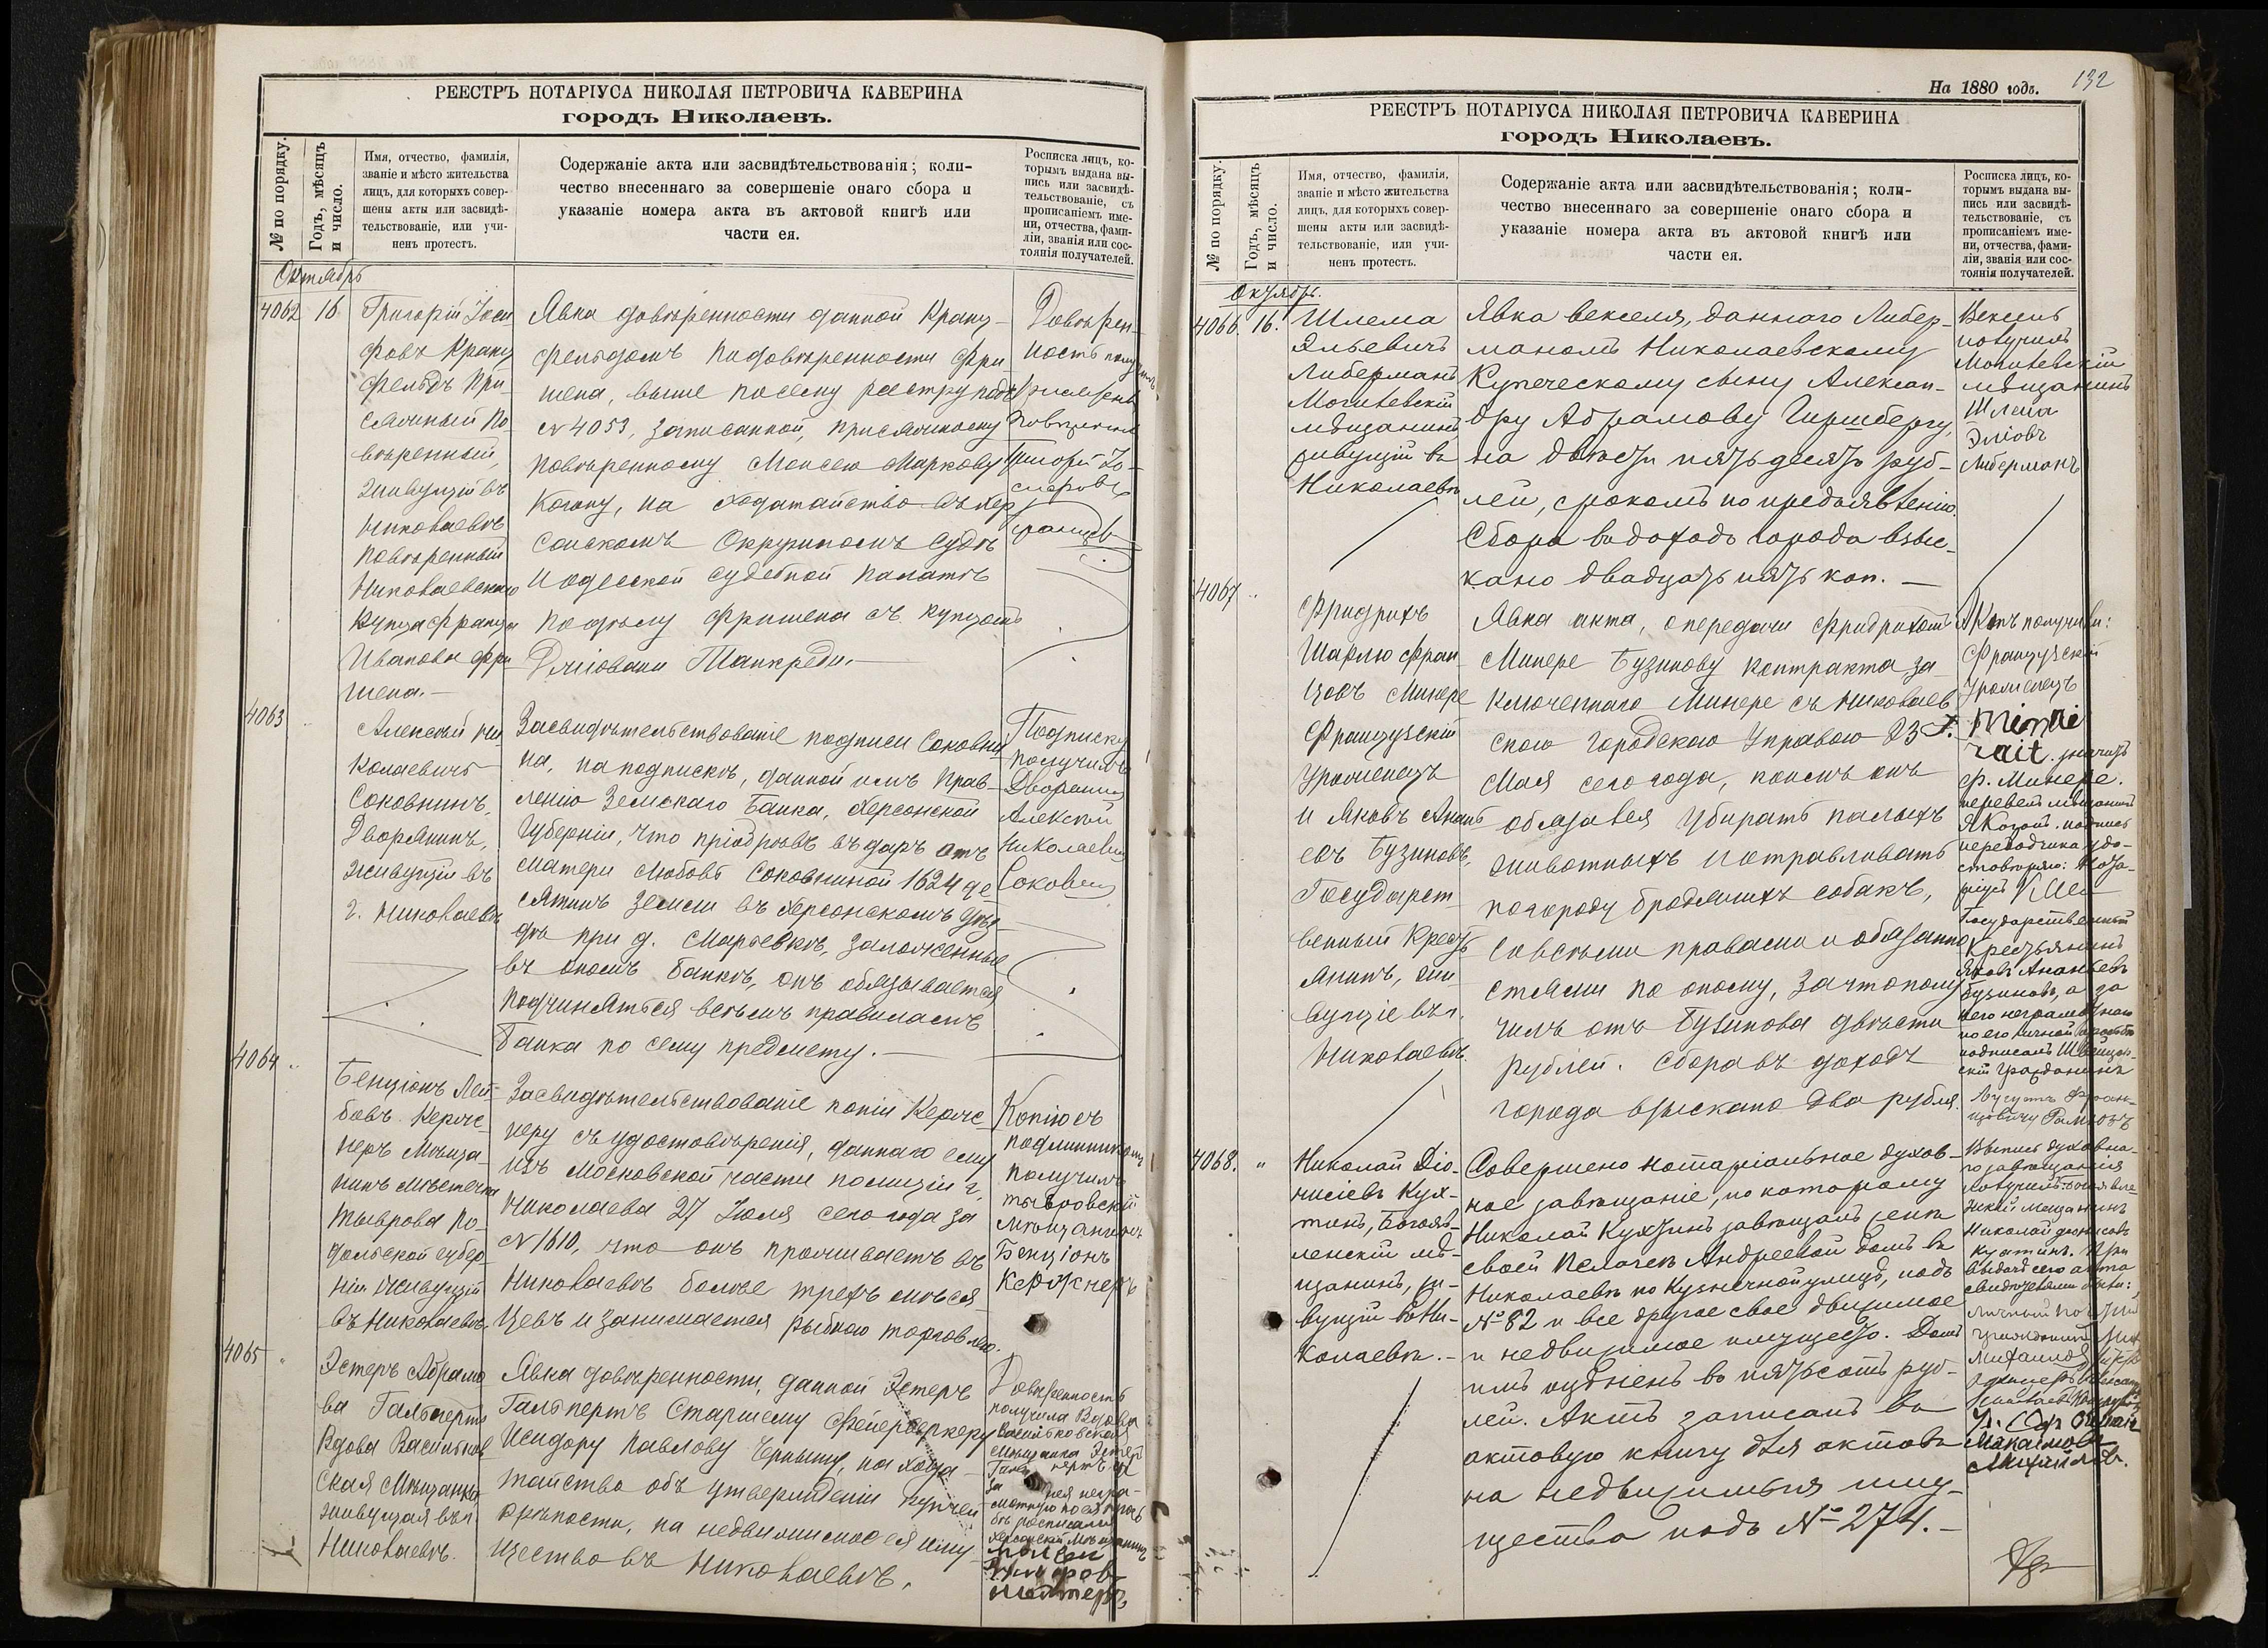 РЕЕСТРЪ НОТАРІУСА НИКОЛАЯ ПЕТРОВИЧА КАВЕРИНА
городъ Николаевъ.
№ по порядку.
Годъ, мѣсяцъ
и число.
Имя, отчество, фамилія,
званіе и мѣсто жительства
лицъ, для которыхъ совер-
шены акты или засвидѣ-
тельствованіе, или учи-
ненъ протестъ.
Содержаніе акта или засвидѣтельствованія; коли-
чество внесеннаго за совершеніе онаго сбора и
указаніе номера акта въ актовой книгѣ или
части ея.
Росписка лицъ, ко-
торымъ выдана вы-
пись или засвидѣ-
тельствованіе, съ
прописаніемъ име-
ни, отчества, фами-
ліи, званія или сос-
тоянія получателей.
Октябрь
4062 16
Григорій Іоси
фовъ Крану
фельдъ При
сяжный По
вѣренный,
живущій въ
Николаевѣ
повѣренный
Николаевскаго
Купца Франца
Иванова Фри
шена.—
Явка довѣренности данной Крану-
фельдомъ по довѣренности Фри
шена, выше по сему реестру подъ
№ 4053, записанной, присяжному
повѣренному Моисею Маркову
Когану, на ходатайство въ Хер
сонскомъ Окружномъ Судѣ
и Одесской Судебной Палатѣ
по дѣлу Фришена съ купцомъ
Джіовани Танкреди.—
Довѣрен-
ность получилъ
Присяжный
Повѣренный
Григорій Іо-
сифовъ
4063
Алексѣй Ни
колаевичъ
Соковнинъ,
Дворянинъ,
живущій въ
г. Николаевѣ
Засвидѣтельствованіе подписи Соковни
на, на подпискѣ, данной имъ Прав-
ленію Земскаго Банка, Херсонской
Губерніи, что пріобрѣвъ въ даръ отъ
матери Любовь Соковниной 1624 де
сятинъ земли въ Херсонскомъ Уѣз
дѣ при д. Мартевкѣ, заложенныя
въ ономъ банкѣ, онъ обязывается
подчиняться всѣмъ правиламъ
Банка по сему предмету.—
Подписку
получилъ
Дворянинъ
Алексѣй
Николаевич
Соковнин
4064 "
Бенціонъ Лей-
бовъ Керже-
неръ Мѣща-
нинъ мѣстечка
Тыврова По-
дольской губер
ніи живущій
въ Николаевѣ.
Засвидѣтельствованіе копіи Керже-
неру съ удостовѣренія, даннаго ему
изъ Московской части полиціи г.
Николаева 27 Іюля сего года за
№ 1610, что онъ проживаетъ въ
Николаевѣ болѣе трехъ мѣся-
цевъ и занимается рыбною торговлею.
Копію съ
подлинникомъ
получилъ
тывровскій
мѣщанинъ
Бенціонъ
Кержнеръ
4065 "
Эстеръ Абрамо
ва Гальпертъ
Вдова Васильков
ская Мѣщанка,
живущая въ г.
Николаевѣ.
Явка довѣренности, данной Эстеръ
Гальпертъ Старшему Фейерверкеру
Исидору Павлову Черныму, на хода-
тайство объ утвержденіи купчей
крѣпости, на недвижимое ея иму-
щество въ Николаевѣ.
Довѣренность
получила Вдова
Васильковская
мѣщанка Эстеръ
На 1880 годъ.
132
РЕЕСТРЪ НОТАРІУСА НИКОЛАЯ ПЕТРОВИЧА КАВЕРИНА
городъ Николаевъ.
№ по порядку.
Годъ, мѣсяцъ
и число.
Имя, отчество, фамилія,
званіе и мѣсто жительства
лицъ, для которыхъ совер-
шены акты или засвидѣ-
тельствованіе, или учи-
ненъ протестъ.
Содержаніе акта или засвидѣтельствованія; коли-
чество внесеннаго за совершеніе онаго сбора и
указаніе номера акта въ актовой книгѣ или
части ея.
Росписка лицъ, ко-
торымъ выдана вы-
пись или засвидѣ-
тельствованіе, съ
прописаніемъ име-
ни, отчества, фами-
ліи, званія или сос-
тоянія получателей.
Октябрь.
4066. 16.
Шлема
Эльевичъ
Либерманъ
Могилевскій
мѣщанинъ
живущій въ
Николаевѣ
Явка векселя, даннаго Либер-
маномъ Николаевскому
Купеческому сыну Алексан-
дру Абрамову Гиршбергу,
на двѣсти пятьдесятъ руб-
лей, срокомъ по предъявленію.
Сбора въ доходъ города взыс-
кано двадцать пять коп.—
Вексель
получилъ
Могилевскій
мѣщанинъ
Шлема
Эліовъ
Либерманъ
4067 "
Фридрихъ
Шарлю Фран
цовъ Минере
Французскій
уроженецъ
и Яковъ Анань
евъ Бузиновъ,
Государст-
венный Кресть
янинъ, жи-
вущіе въ г.
Николаевѣ.
Явка акта, о передачи Фридрихомъ
Минере Бузинову контракта за-
ключеннаго Минере съ Николаев
скою Городскою Управою 23
Мая сего года, коимъ онъ
обязался убирать палыхъ
животныхъ и отравливать
по городу бродячихъ собакъ,
со всѣми правами и обязанно
стями по оному, за что полу
чилъ отъ Бузинова двѣсти
рублей. Сбора въ доходъ
города взыскано два рубля.
Актъ получили:
Французскій
Уроженецъ
значитъ
Ф. Минере.
перевелъ мѣщанинъ
Я Коганъ. подпись
переводчика удо-
стовѣряю: Нота-
ріусъ
Государственный
Крестьянинъ
Яковъ Ананьевъ
Бузиновъ, а за
него неграмотнаго
по его личной просьбѣ
подписалъ Швейцар-
скій гражданинъ
4068. "
Николай Діо-
нисіевъ Кух-
тинъ, Богояв-
ленскій мѣ-
щанинъ, жи-
вущій въ Ни-
колаевѣ.—
Совершено нотаріальное духов-
ное завѣщаніе, по которому
Николай Кухтинъ завѣщалъ женѣ
своей Пелагеѣ Андреевой домъ въ
Николаевѣ по Кузнечной улицѣ, подъ
№ 82 и все другое свое движимое
и недвижимое имущество. Домъ
имъ оцѣненъ въ пятьсотъ руб-
лей. Актъ записанъ въ
актовую книгу для актовъ
на недвижимыя иму-
щества подъ № 274.—
Выпись духовна-
го завѣщанія
получилъ Богоявле-
нскій мещанинъ
Николай Денисовъ
Кухтинъ. При
выдачѣ сего акта
свидѣтелями были: